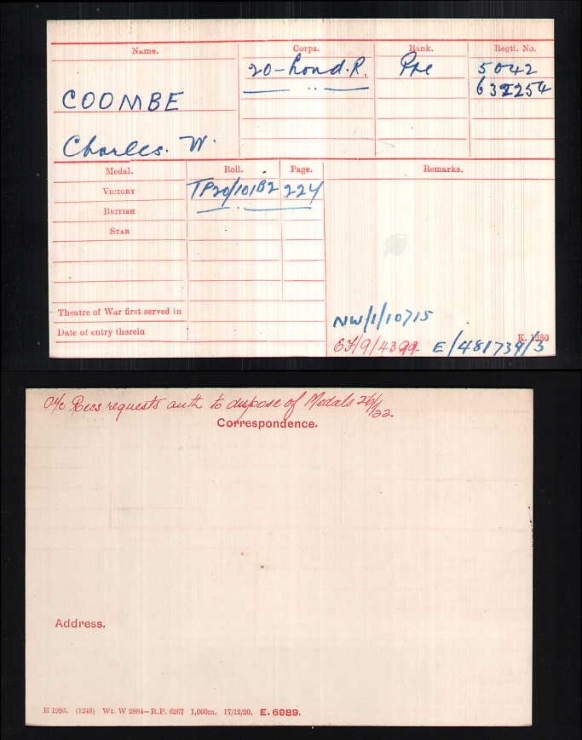 Name. Corps. Rank. Regtl. No.
20-Lond.R. Pte 5042
COOMBE — " — 632254
Charles. W.
Medal. Roll. Page. Remarks.
VICTORY TP20/101B2 224
BRITISH — " —
STAR
Theatre of War first served in
Date of entry therein
NW/1/10715
E/481739/3
K. 1380
O/c Recs requests auth to dispose of Medals
Correspondence.
Address.
E 1255. (1246) Wt. W 2884—R.P. 6267 1,000m. 17/12/20. E.6989.